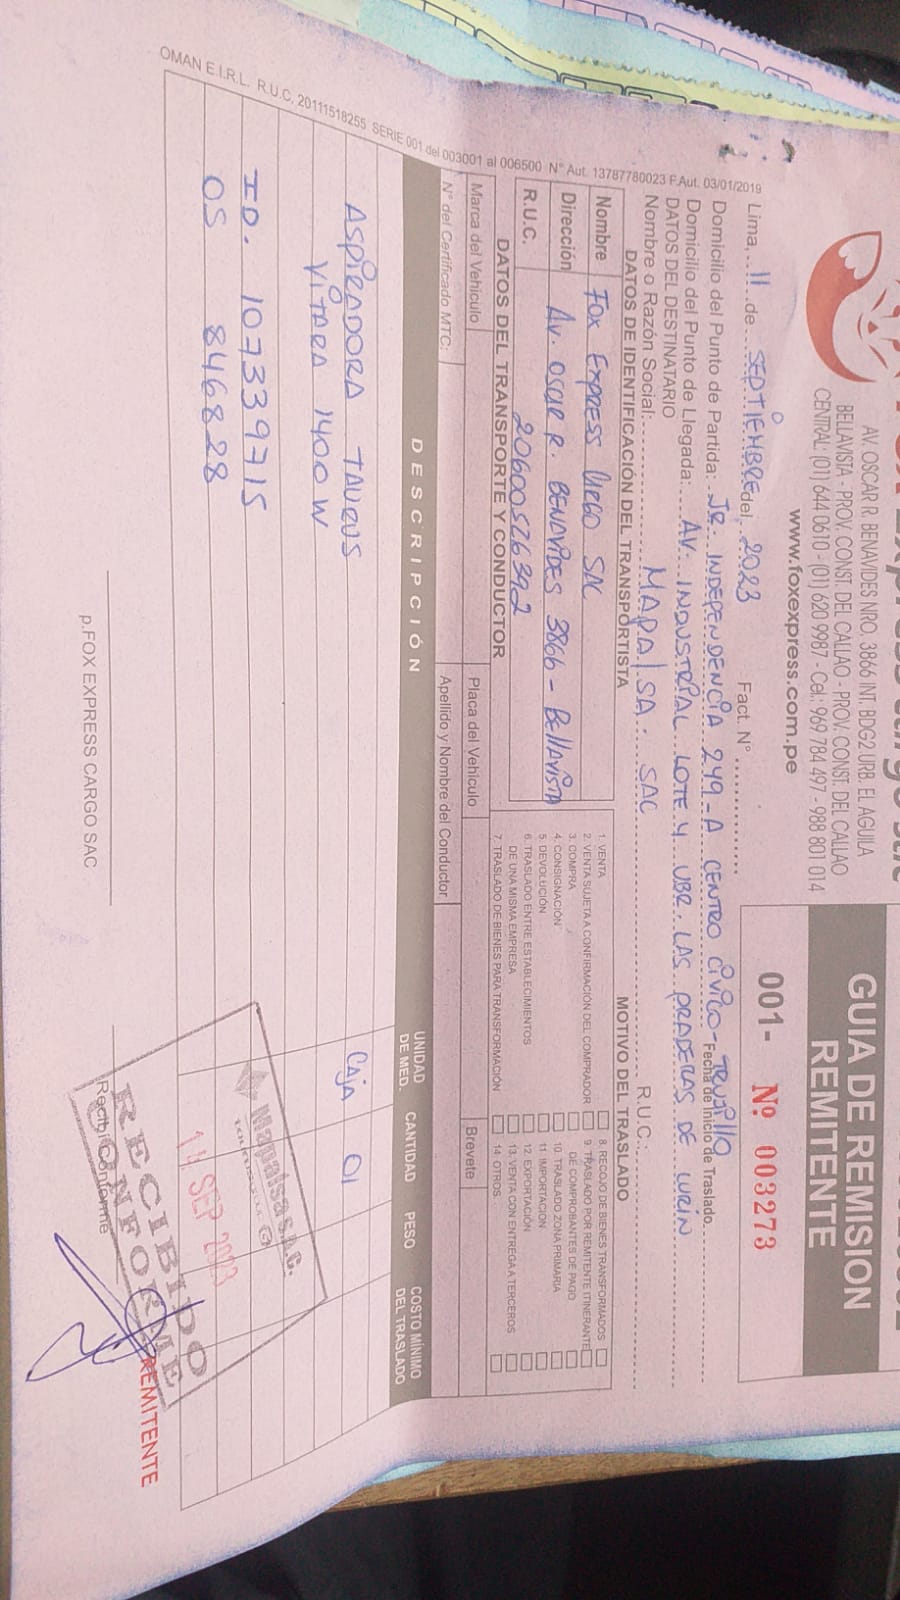 AV. OSCAR R. BENAVIDES NRO. 3866 INT. BDG2 URB. EL AGUILA
BELLAVISTA - PROV. CONST. DEL CALLAO - PROV. CONST. DEL CALLAO
CENTRAL: (01) 644 0610 - (01) 620 9987 - Cel.: 969 784 497 - 988 801 014
www.foxexpress.com.pe
GUIA DE REMISION
REMITENTE
001- Nº 003273
Lima, 11 de SEPTIEMBRE del 2023 Fact. N°
Domicilio del Punto de Partida: JR. INDEPENDENCIA 249-A CENTRO CIVICO - TRUJILLO Fecha de Inicio de Traslado.
Domicilio del Punto de Llegada: AV. INDUSTRIAL LOTE 4 UBR. LAS PRADERAS DE LURIN
DATOS DEL DESTINATARIO
Nombre o Razón Social: MAPALSA. SAC R.U.C.:
DATOS DE IDENTIFICACIÓN DEL TRANSPORTISTA
Nombre FOX EXPRESS CARGO SAC
Dirección AV. OSCAR R. BENAVIDES 3866 - BELLAVISTA
R.U.C. 20600526392
MOTIVO DEL TRASLADO
1. VENTA
2. VENTA SUJETA A CONFIRMACIÓN DEL COMPRADOR
3. COMPRA
4. CONSIGNACIÓN
5. DEVOLUCIÓN
6. TRASLADO ENTRE ESTABLECIMIENTOS
DE UNA MISMA EMPRESA
7. TRASLADO DE BIENES PARA TRANSFORMACIÓN
8. RECOJO DE BIENES TRANSFORMADOS
9. TRASLADO POR REMITENTE ITINERANTE
DE COMPROBANTES DE PAGO
10. TRASLADO ZONA PRIMARIA
11. IMPORTACION
12. EXPORTACIÓN
13. VENTA CON ENTREGA A TERCEROS
14. OTROS
DATOS DEL TRANSPORTE Y CONDUCTOR
Marca del Vehículo Placa del Vehículo Brevete
N° del Certificado MTC: Apellido y Nombre del Conductor
DESCRIPCIÓN UNIDAD DE MED. CANTIDAD PESO COSTO MÍNIMO DEL TRASLADO
ASPIRADORA TAURUS CAJA 01
VITARA 1400W
ID. 107339715
OS 846828
OMAN E.I.R.L. R.U.C. 20111518255 SERIE 001 del 003001 al 006500 N° Aut. 13787780023 F.Aut. 03/01/2019
Mapalsa S.A.C.
14 SEP 2023
RECIBIDO
CONFORME
p.FOX EXPRESS CARGO SAC
Recibí Conforme
REMITENTE